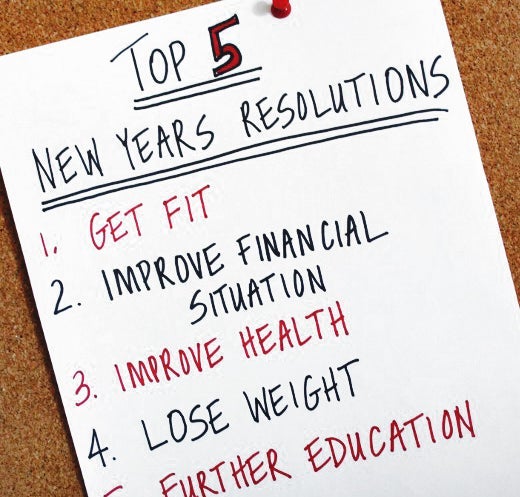 TOP 5
NEW YEARS RESOLUTIONS
1. GET FIT
2. IMPROVE FINANCIAL
SITUATION
3. IMPROVE HEALTH
4. LOSE WEIGHT
5. FURTHER EDUCATION